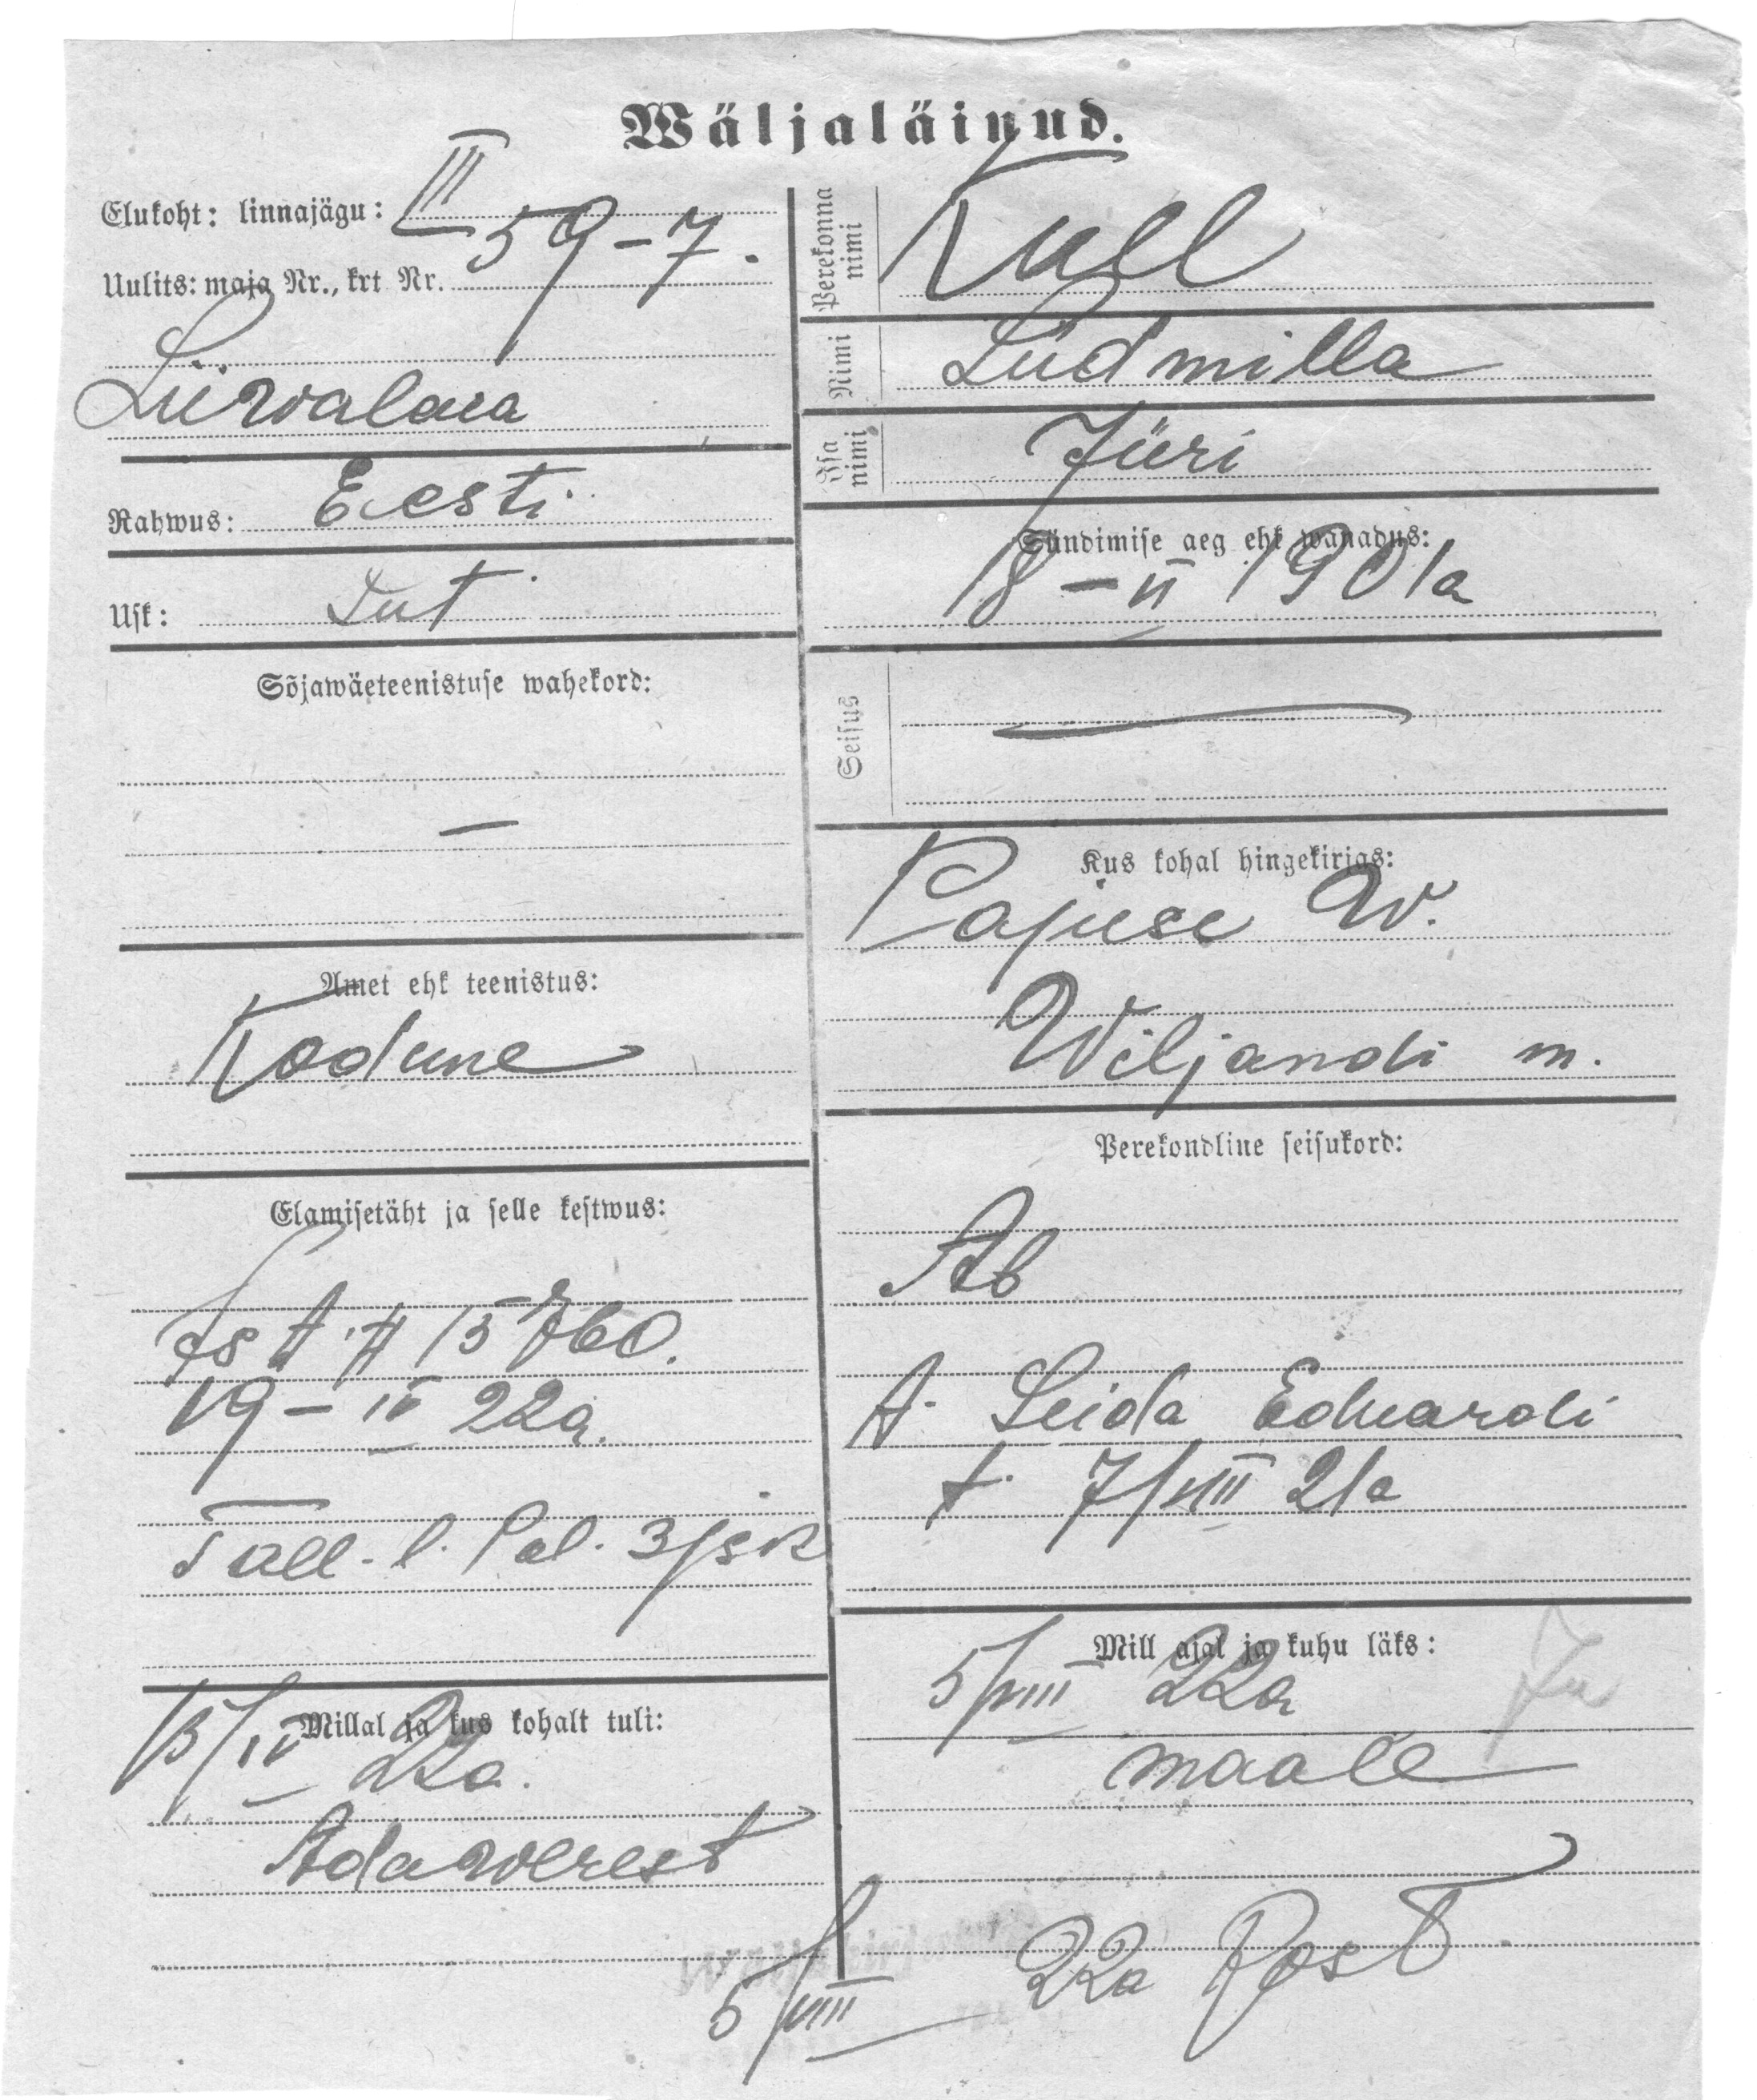 Wäljaläinud.
Elukoht: linnajägu: III
Uulits: maja Nr., krt Nr. 59-7.
Liiwalaia
Rahwus: Eesti
Usk: Lut
Sõjawäeteenistuse wahekord:
—
Amet ehk teenistus:
Kodune
Elamisetäht ja selle kestwus:
15760.
19-IV 22a.
Tall. l. Pol. 3 jsk
Millal ja kus kohalt tuli:
13/IV 22a.
Adawerest
Perekonna nimi Kull
Nimi Ludmilla
Isa nimi Jüri
Sündimise aeg ehk wanadus:
18-II 1901a
Seisus —
Kus kohal hingekirjas:
Pajuse W.
Wiljandi m.
Perekondline seisukord:
Ab
t. Leida Eduardi
t. 7/VIII 21a
Mill ajal ja kuhu läks:
5/VIII 22a
maale
5/VIII 22a Post